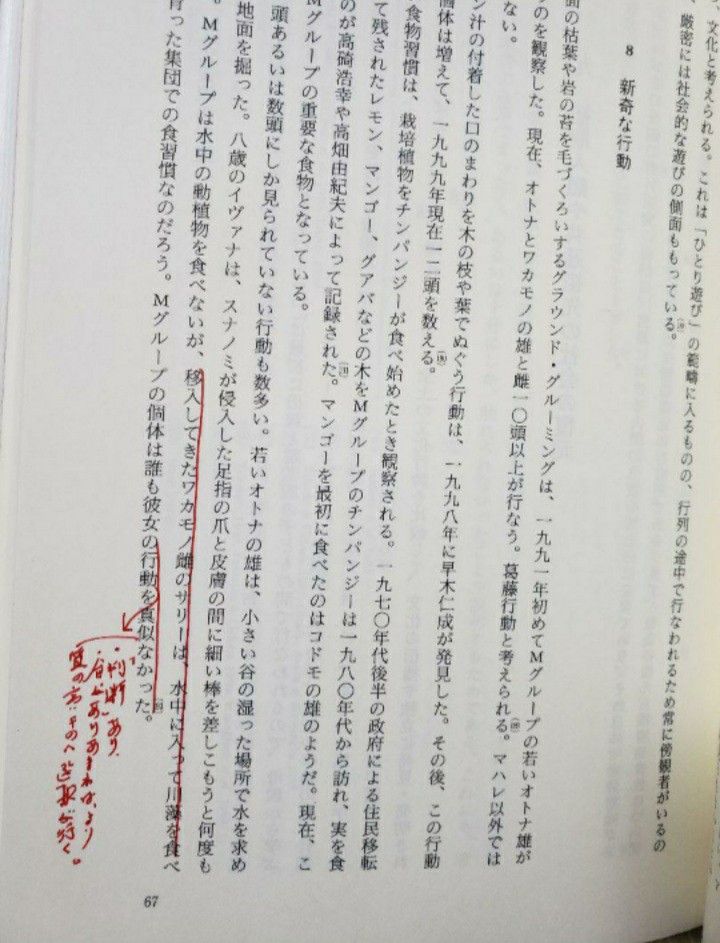 、文化と考えられる。これは「ひとり遊び」の範疇に入るものの、行列の途中で行なわれるため常に傍観者がいるの
、厳密には社会的な遊びの側面ももっている。
8 新奇な行動
面の枯葉や岩の苔を毛づくろいするグラウンド・グルーミングは、一九九一年初めてMグループの若いオトナ雄が
のを観察した。現在、オトナとワカモノの雄と雌一〇頭以上が行なう。葛藤行動と考えられる。マハレ以外では
ない。
ン汁の付着した口のまわりを木の枝や葉でぬぐう行動は、一九九八年に早木仁成が発見した。その後、この行動
個体は増えて、一九九九年現在一二頭を数える。
食物習慣は、栽培植物をチンパンジーが食べ始めたとき観察される。一九七〇年代後半の政府による住民移転
て残されたレモン、マンゴー、グアバなどの木をMグループのチンパンジーは一九八〇年代から訪れ、実を食
のが高碕浩幸や高畑由紀夫によって記録された。マンゴーを最初に食べたのはコドモの雄のようだ。現在、こ
Mグループの重要な食物となっている。
頭あるいは数頭にしか見られていない行動も数多い。若いオトナの雄は、小さい谷の湿った場所で水を求め
地面を掘った。八歳のイヴァナは、スナノミが侵入した足指の爪と皮膚の間に細い棒を差しこもうと何度も
。Mグループは水中の動植物を食べないが、移入してきたワカモノ雌のサリーは、水中に入って川藻を食べ
育った集団での食習慣なのだろう。Mグループの個体は誰も彼女の行動を真似なかった。
・「判断」あり、
ありあまれば、より
質の方、そのへ選択が行く。
67